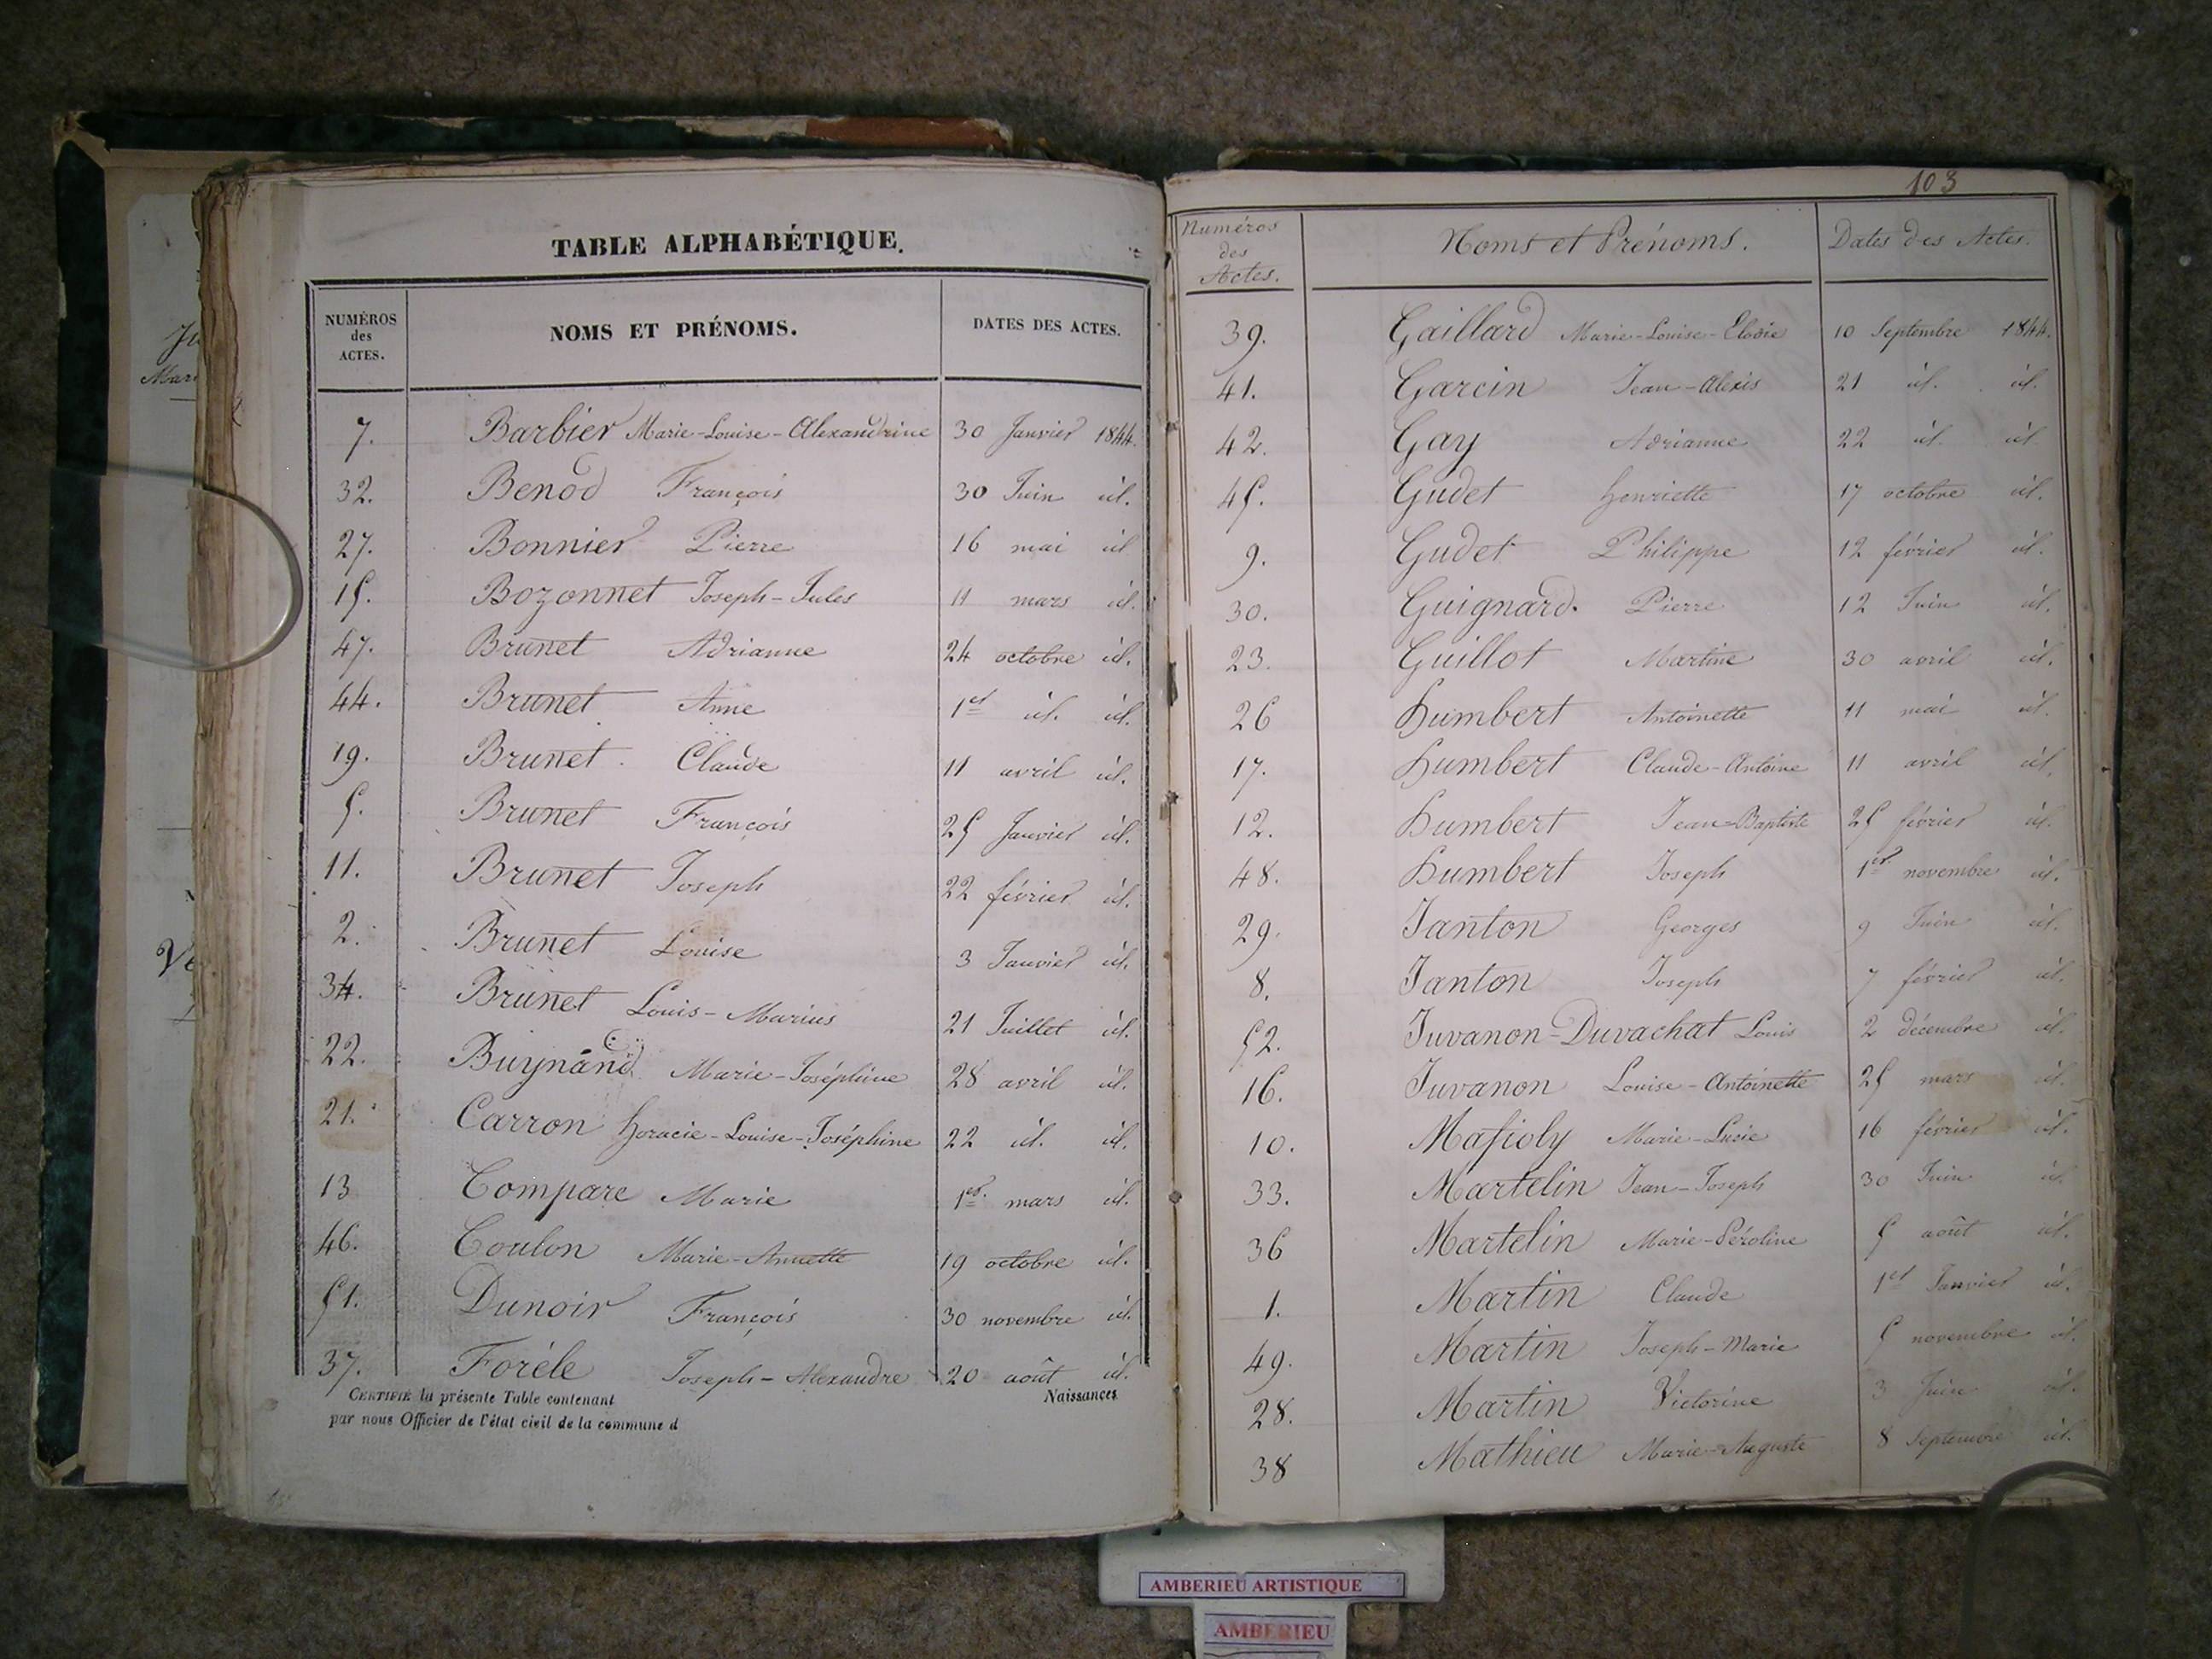 TABLE ALPHABÉTIQUE.
NUMÉROS des ACTES. NOMS ET PRÉNOMS. DATES DES ACTES.
7. Barbier Marie-Louise-Alexandrine 30 Janvier 1844.
32. Benod François 30 Juin id.
27. Bonnier Pierre 16 mai id
15. Bozonnet Joseph-Jules 11 mars id.
47. Brunet Adrianne 24 octobre id.
44. Brunet Anne 1er id. id.
19. Brunet Claude 11 avril id.
5. Brunet François 25 Janvier id.
11. Brunet Joseph 22 février id.
2. Brunet Louise 3 Janvier id.
34. Brunet Louis-Marius 21 Juillet id.
22. Buynand Marie-Joséphine 28 avril id.
21. Carron horacie-Louise-Joséphine 22 id. id.
13 Compare Marie 1er mars id.
46. Coulon Marie-Annette 19 octobre id.
51. Dunoir François 30 novembre id.
37. Foréle Joseph-Alexandre 20 août id.
CERTIFIÉ la présente Table contenant Naissances
par nous Officier de l'état civil de la commune d
103
Numéros des Actes. Noms et Prénoms. Dates des Actes.
39. Gaillard Marie-Louise-Elodie 10 Septembre 1844.
41. Garcin Jean-Alexis 21 id. id.
42. Gay Adrianne 22 id. id
45. Gudet henriette 17 octobre id.
9. Gudet Philippe 12 février id.
30. Guignard. Pierre 12 Juin id.
23. Guillot Martine 30 avril id.
26 Humbert Antoinette 11 mai id.
17. Humbert Claude-Antoine 11 avril id.
12. Humbert Jean-Baptiste 25 février id.
48. Humbert Joseph 1er novembre id.
29. Janton Georges 9 Juin id.
8. Janton Joseph 7 février id.
52. Juvanon-Duvachat Louis 2 décembre id.
16. Juvanon Louise-Antoinette 25 mars id.
10. Mafioly Marie-Lucie 16 février id.
33. Martelin Jean-Joseph 30 Juin id
36 Martelin Marie-Péroline 5 août id.
1. Martin Claude 1er Janvier id.
49. Martin Joseph-Marie 5 novembre id.
28. Martin Victorine 3 Juin id.
38 Mathieu Marie-Auguste 8 Septembre id.
AMBERIEU ARTISTIQUE
AMBERIEU